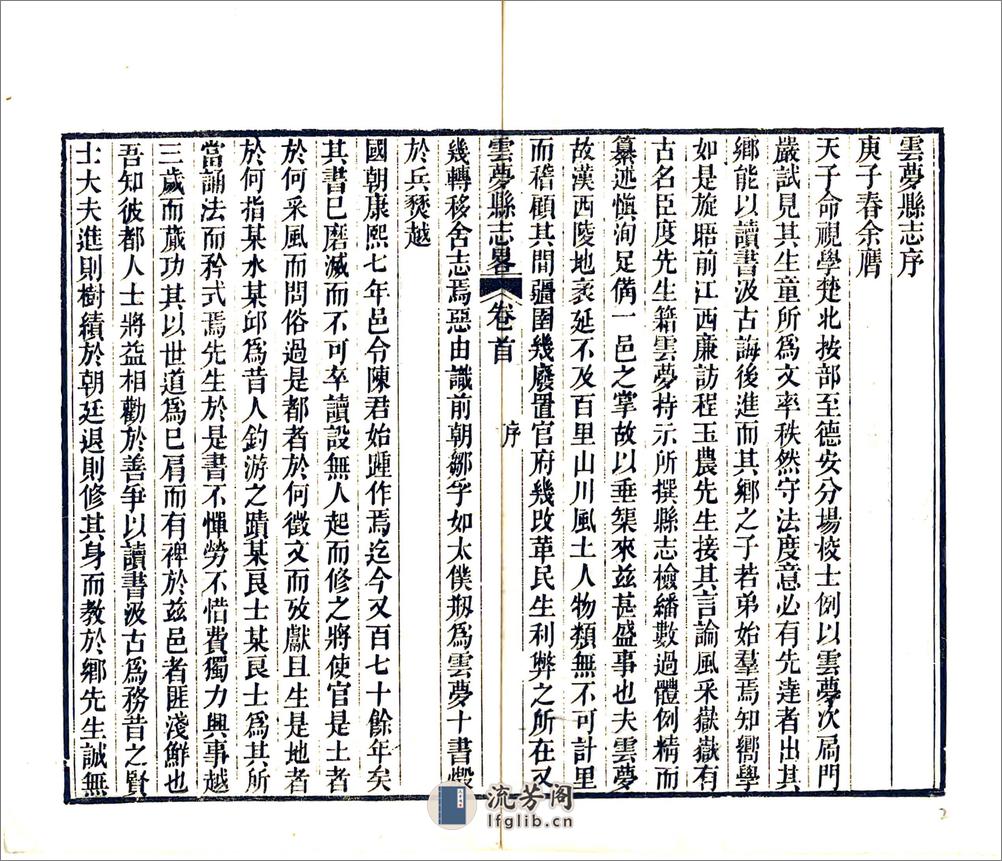 雲夢縣志序
庚子春余膺
天子命視學楚北按部至德安分場校士例以雲夢次扃門
嚴試見其生童所為文率秩然守法度意必有先達者出其
鄉能以讀書汲古誨後進而其鄉之子若弟始羣焉知嚮學
如是旋晤前江西廉訪程玉農先生接其言論風采嶽嶽有
古名臣度先生籍雲夢持示所撰縣志檢繙數過體例精而
纂述愼洵足備一邑之掌故以垂榘來茲甚盛事也夫雲夢
故漢西陵地袤延不及百里山川風土人物類無不可計里
而稽顧其間疆圉幾廢置官府幾改革民生利弊之所在又
雲夢縣志畧
卷首
序
幾轉移舍志焉惡由識前朝鄒孚如太僕剏為雲夢十書燬
於兵燹越
國朝康熙七年邑令陳君始踵作焉迄今又百七十餘年矣
其書已磨滅而不可卒讀設無人起而修之將使官是土者
於何采風而問俗過是都者於何徵文而攷獻且生是地者
於何指某水某邱為昔人釣游之蹟某良士某良士為其所
當誦法而矜式焉先生於是書不憚勞不惜費獨力興事越
三歲而蕆功其以世道為已肩而有裨於茲邑者匪淺鮮也
吾知彼都人士將益相勸於善爭以讀書汲古為務昔之賢
士大夫進則樹績於朝廷退則修其身而教於鄉先生誠無
流芳阁
lfglib.cn